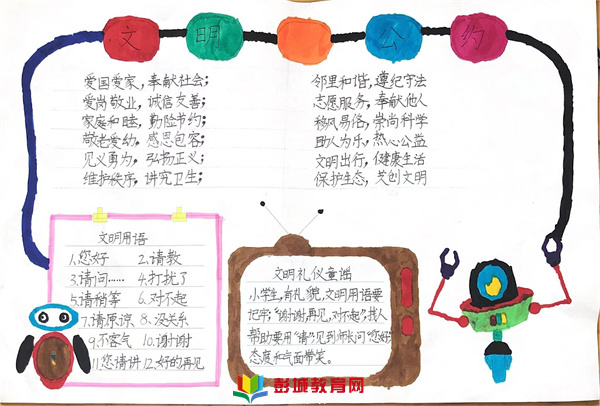 文明 公约
爱国爱家，奉献社会；
爱岗敬业，诚信友善；
家庭和睦，勤俭节约；
敬老爱幼，感恩包容；
见义勇为，弘扬正义；
维护秩序，讲究卫生；
邻里和谐，遵纪守法
志愿服务，奉献他人
移风易俗，崇尚科学
助人为乐，热心公益
文明出行，健康生活
保护生态，共创文明
文明用语
1.您好 2.请教
3.请问…… 4.打扰了
5.请稍等 6.对不起
7.请原谅 8.没关系
9.不客气 10.谢谢
11.您请讲 12.好的再见
文明礼仪童谣
小学生，有礼貌，文明用语要
记牢；“谢谢再见，对不起”；找人
帮助要用“请”；见到师长问“您好”
态度和气面带笑。
彭城教育网